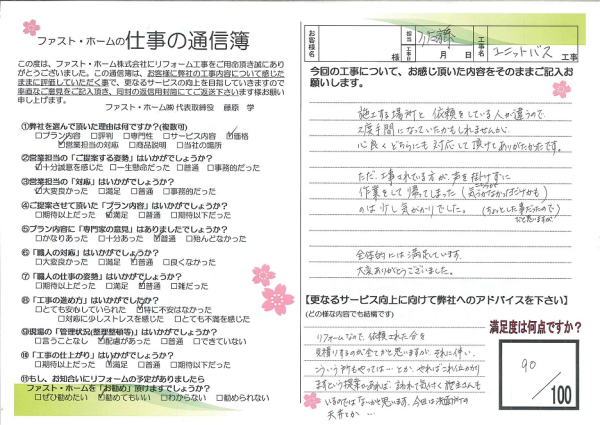 ファスト・ホームの仕事の通信簿
この度は、ファスト・ホーム株式会社にリフォーム工事をご用命頂き誠にあり
がとうございました。この通信簿は、お客様に弊社の工事内容について感じた
ままに評価していただく事で、更なるサービスの向上を目指していきますので
率直なご意見をご記入頂き、同封の返信用封筒にてご返送下さいます様お願い
申し上げます。
ファスト・ホーム㈱ 代表取締役　藤原　学
①弊社を選んで頂いた理由は何ですか?(複数可)
□プラン内容　□評判　□専門性　□サービス内容　☑価格
☑営業担当の対応　□商品説明　□当社の場所
②営業担当の「ご提案する姿勢」はいかがでしょうか?
☑十分誠意を感じた　□一生懸命だった　□普通　□事務的だった
③営業担当の「対応」はいかがでしょうか?
☑大変良かった　□満足　□普通　□事務的だった
④ご提案させて頂いた「プラン内容」はいかがでしょうか?
□期待以上だった　☑満足　□普通　□期待以下だった
⑤プラン内容に「専門家の意見」はありましたでしょうか?
□かなりあった　□十分あった　☑普通　□殆んどなかった
⑥「職人の対応」はいかがでしょうか?
□大変良かった　□満足　☑普通　□良くなかった
⑦「職人の仕事の姿勢」はいかがでしょうか?
□期待以上だった　□満足　☑普通　□雑だった
⑧「工事の進め方」はいかがでしたか?
□とても安心していられた　☑特に不安はなかった
□対応に少しストレスを感じた　□とても不満を感じた
⑨現場の「管理状況(整理整頓等)」はいかがでしょうか?
□言うことなし　☑配慮があった　□普通　□できていない
⑩「工事の仕上がり」はいかがでしょうか?
□期待以上だった　☑満足　□普通　□期待以下だった
⑪もし、お知合いにリフォームの予定がありましたら
ファスト・ホームを「お勧め」頂けますでしょうか?
□ぜひ勧めたい　☑勧めてもいい　□わからない　□勧められない
お客様名　様　担当　佐藤　工事名　ユニットバス　工事
今回の工事について、お感じ頂いた内容をそのままご記入お
願いします。
施工する場所と依頼をしている人が違うので、
2度手間になっていたかもしれませんが、
心良くどちらにも対応して頂けてありがたかったです。
ただ、工事されている方が声を掛けずに
作業をして帰ってしまった(こちらが気づかなかっただけかも)
のは少し気がかりでした。(ちょっとした事だったのでだと思いますが)
全体的には満足しています。
大変ありがとうございました。
【更なるサービス向上に向けて弊社へのアドバイスを下さい】
(どの様な内容でも結構です)
満足度は何点ですか?
90
/100
リフォームなので、依頼された分を
見積りするのが全てかと思いますが、それに伴い、
こういう所もやっては…とか、やればこれ位かかり
ますという提案があれば、
いるのではないかと思います。今回は洗面所の
天井とか…